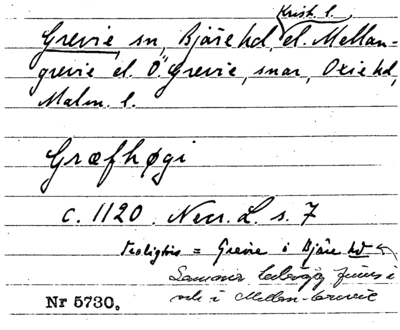 Krist. l.
Grevie sn, Bjäre hd, el. Mellan-
grevie el. Ö. Grevie, snar, Oxie hd,
Malm. l.
Græfhøgi
c. 1120. Necr. L. s. 7
troligtvis = Grevie i Bjäre hd
Samma finns i
och i Mellan-Grevie
Nr 5730.